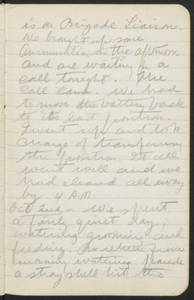 is on Brigade Liaison.
We brought up some
Ammunition in the afternoon
and are waiting for a
call tonight. The
call came. We had
to move the battery back
to its last position.
I went up and took
charge of transferring
the position. It all
went well and we
had cleaned all away
by 4 A.M.
Oct We spent
a fairly quiet day,
watering grooming and
feeding. As return from
morning watering parade
a stray shell hit the